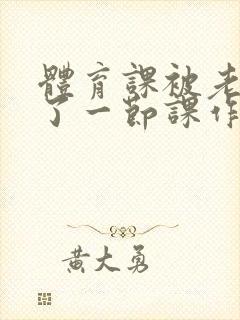 體育課被老
了一節課作
黃大勇